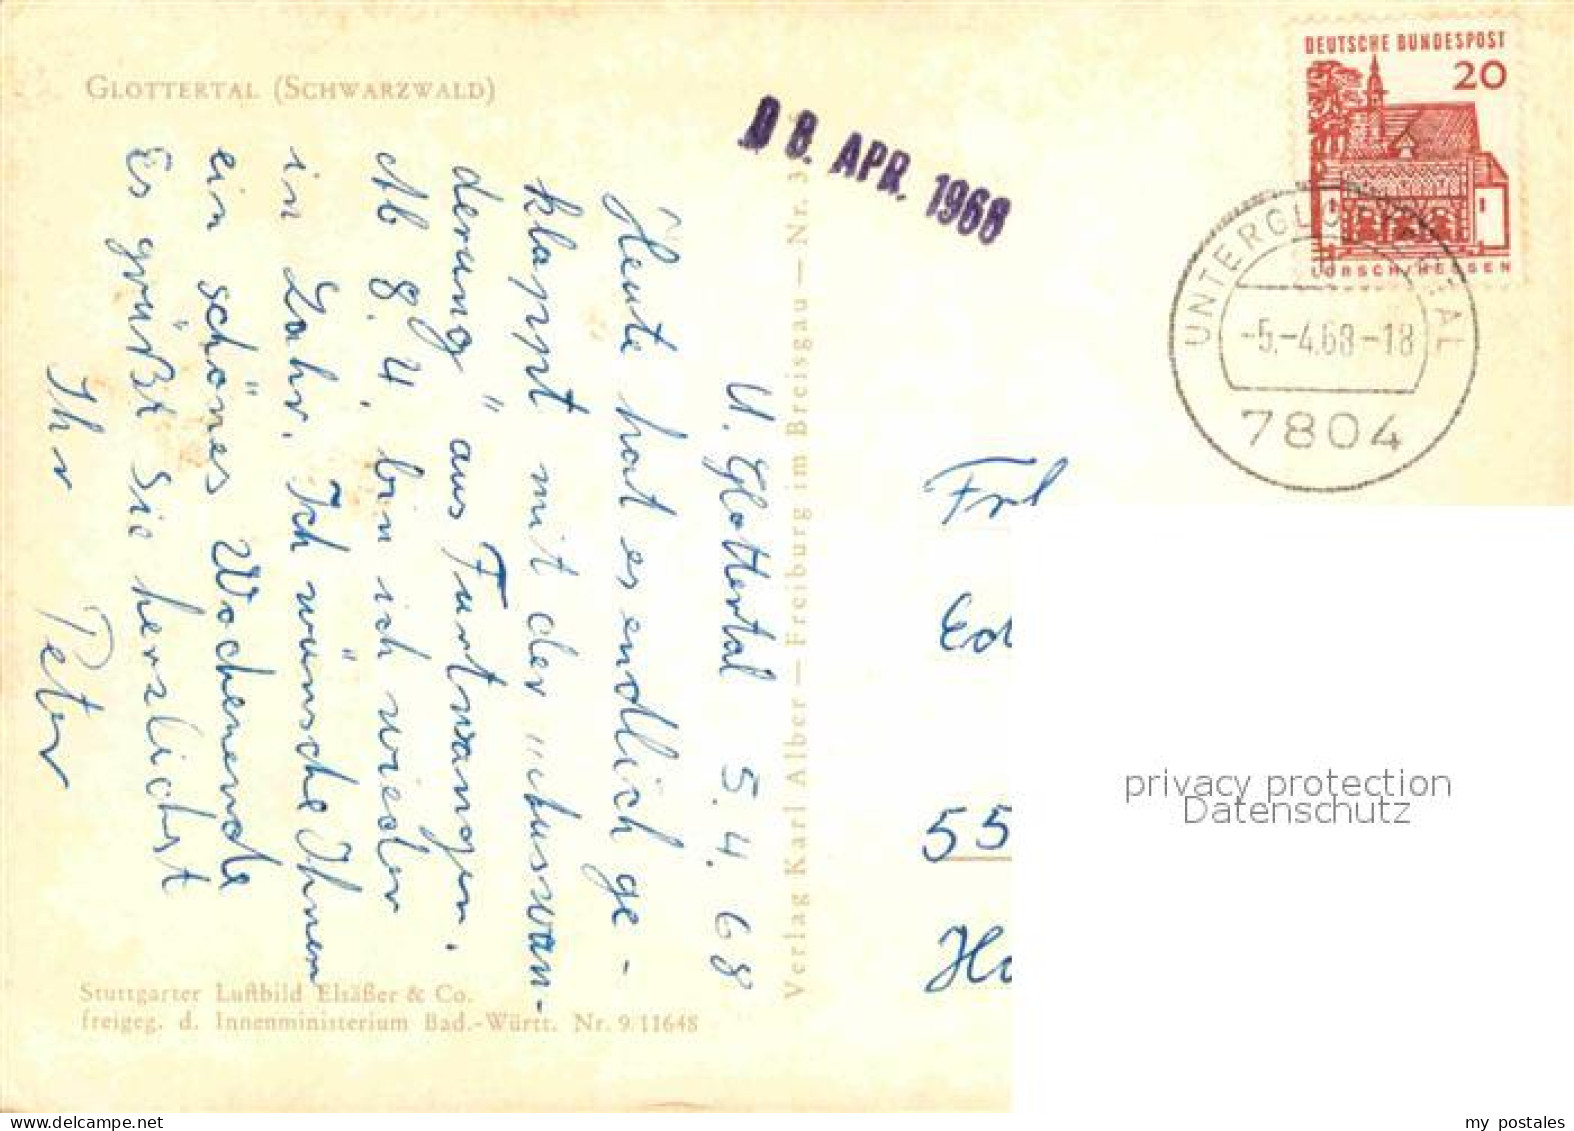 GLOTTERTAL (SCHWARZWALD)
U. Glottertal 5.4.68
Heute hat es endlich ge-
klappt mit der „Auswan-
derung" aus Furtwangen.
Ab 8.4. bin ich wieder
in Lahr. Ich wünsche Ihnen
ein schönes Wochenende
Es grüßt Sie herzlichst
Ihr Peter
Stuttgarter Luftbild Elsäßer & Co.
freigeg. d. Innenministerium Bad.-Württ. Nr. 9/11648
Verlag Karl Alber — Freiburg im Breisgau — Nr. 3
08. APR. 1968
DEUTSCHE BUNDESPOST
20
LORSCH/HESSEN
UNTERGLOTTERTAL
-5.-4.68-18
7804
Frl
55
privacy protection
Datenschutz
my postales
www.delcampe.net